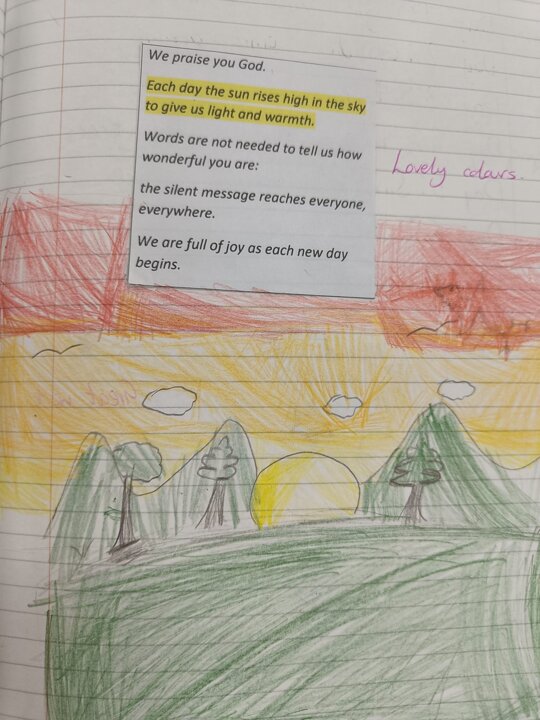 We praise you God.
Each day the sun rises high in the sky
to give us light and warmth.
Words are not needed to tell us how
wonderful you are:
the silent message reaches everyone,
everywhere.
We are full of joy as each new day
begins.
Lovely colours.